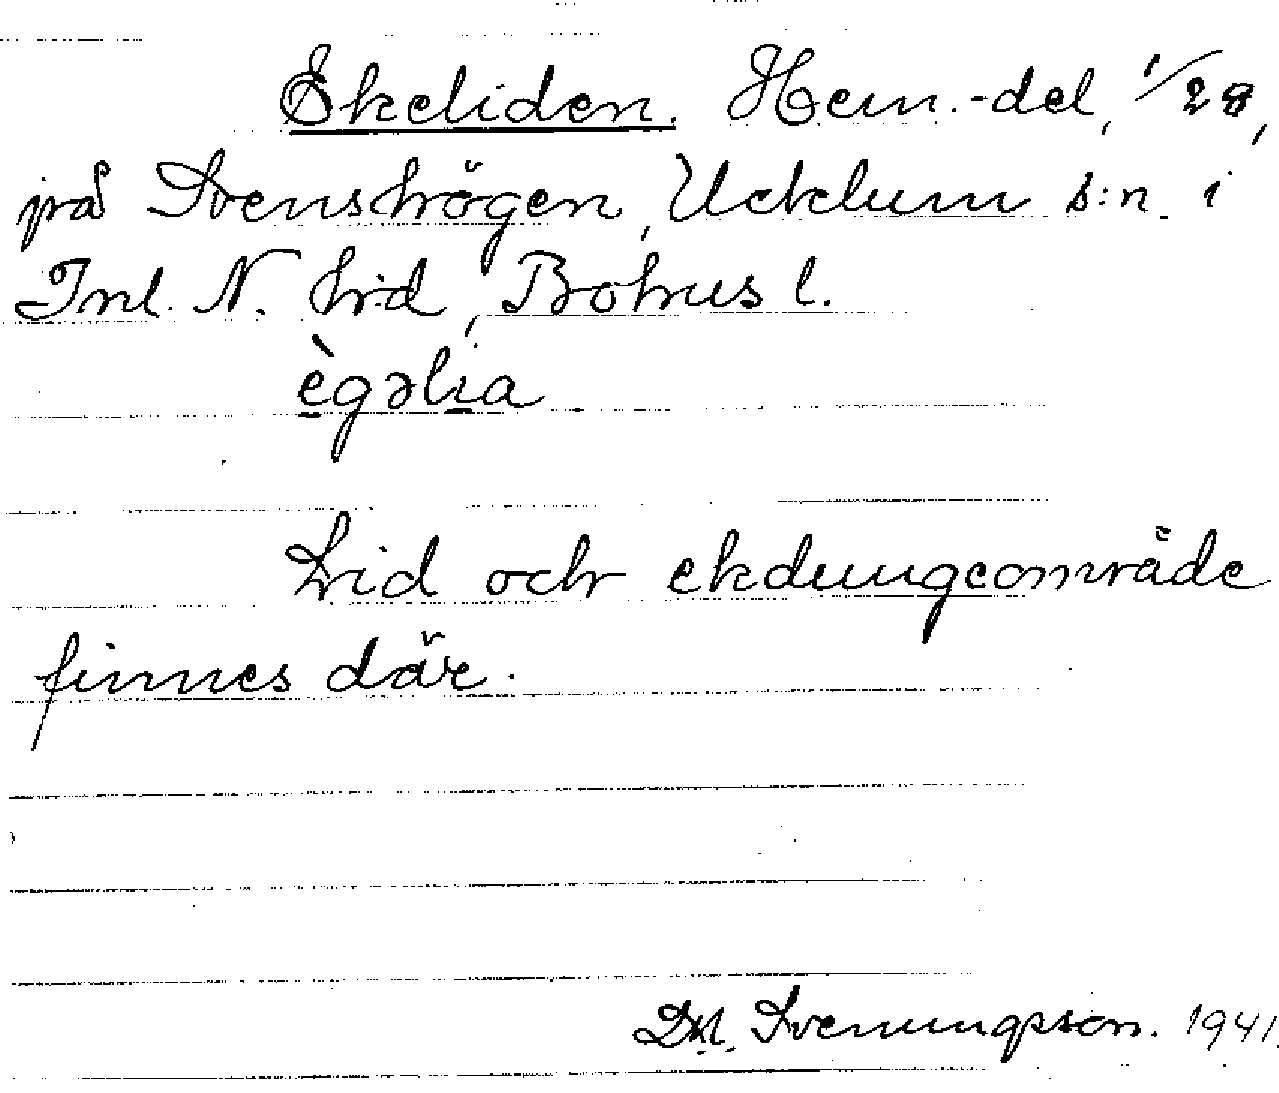 Ekeliden. Hem.-del, 1/28,
på Svenshögen, Ucklum s:n i
Inl. N. hd, Bohus l.
ègəlia
Lid och ekdungeområde
finnes där.
Svenungsson. 1941.